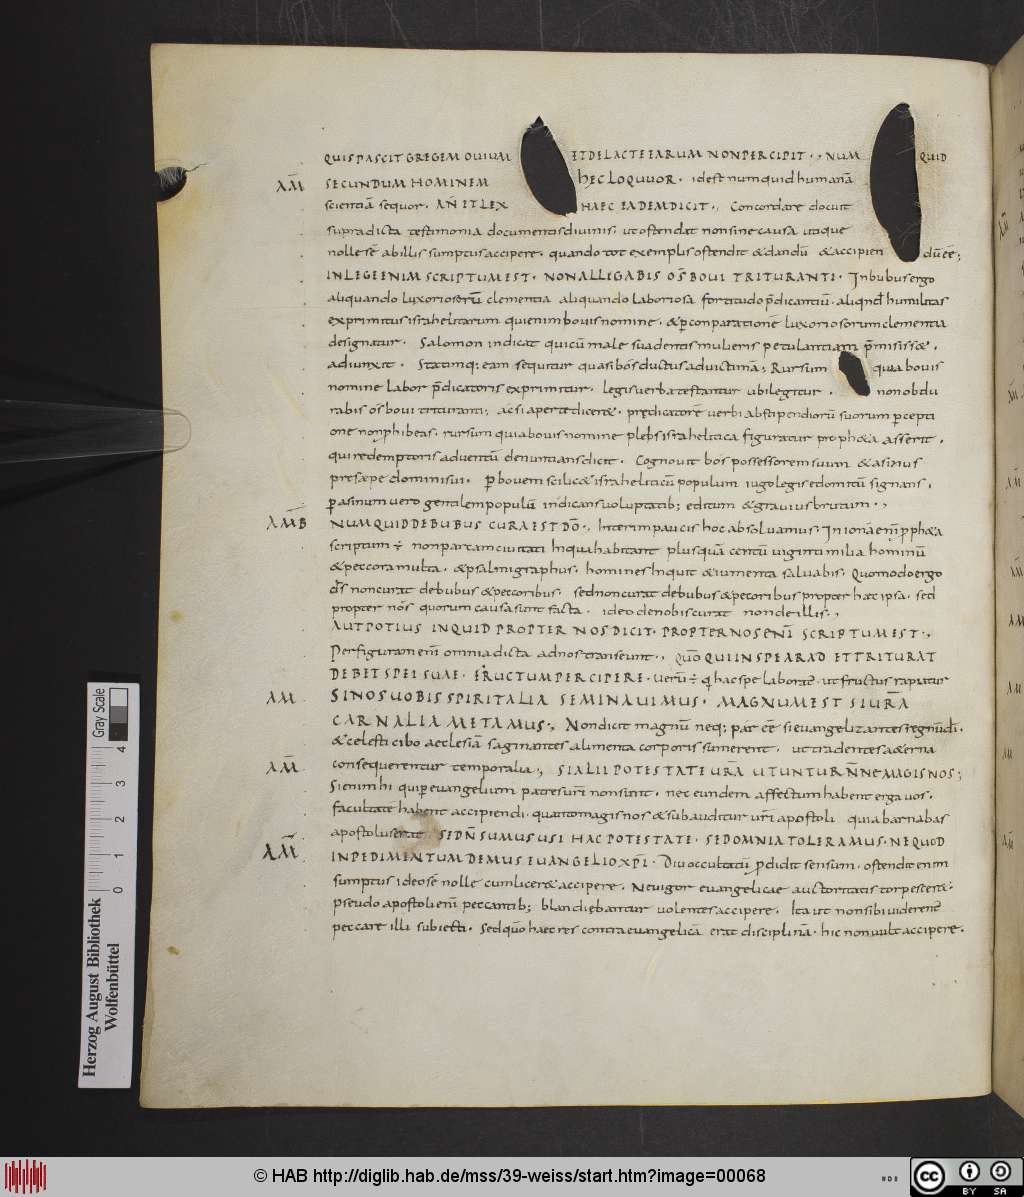 QUIS PASCIT GREGEM OVIUM ET DE LACTE EARUM NON PERCIPIT · , NUM QUID
AM̄ SECUNDUM HOMINEM hEC LOQUUOR · id est numquid humanā
scientiā sequor · AN̄ ET LEX HAEC EADEM DICIT · , Concordare docuit
supra dicta testimonia documentis divinis · ut ostendat non sine causa utique
nolle sē ab illis sumptus accipere · quando tot exemplis ostendit & dandū & accipien dū cē;
IN LEGE ENIM SCRIPTUM EST · NON ALLEGABIS OS̄ BOUI TRITURANTI · In bubus ergo
aliquando luxoriosorū clementia aliquando laboriosa fortitudo p̄dicantiū · aliqnd humilitas
exprimitur israhelitarum qui enim bouis nomine · & p conparationē luxoriosorum clementia
designatur · Salomon indicat qui cū male suadentis mulieris petulantiam p̄misiss& ·
adiunxit · Statimq; eam sequitur quasi bos ductus ad uictimā; Rursum quia bouis
nomine labor p̄dicatoris exprimitur · legis uerba testantur ubi legitur · non obdu
rabis os boui trituranti; ac si aperte dicer& · predicatorē uerbi ab stipendiorū suorum pcepti
one non phibeas · rursum quia bouis nomine plebs israhelitica figuratur proph&a asserit ·
qui redemptoris aduentū denuntians dicit · Cognouit bos possessorem suum & asinus
presaepe domini sui · p bouem scilic& israheliticū populum iugo legis edomitū signans ·
p asinum uero gentilem populū indicans uoluptatib; editum & grauius brutum · ,
AM̄B NUMQUID DE BUBUS CURA EST DŌ · , Interim paucis hoc absoluamus · In iona eni p ph&a
scriptum ē non parcam ciuitati In qua habitant plus quā centū uiginti milia hominū
& peccora multa · & psalmigraphus · homines Inquit & iumenta saluabis · Quomodo ergo
ds̄ non curat de bubus & peccoribus · sed non curat de bubus & pecoribus propter haec ipsa · sed
propter nos quorum causa sunt facta · ideo de nobis curat non de illis · ,
AUT POTIUS INQUID PROPTER NOS DICIT · PROPTER NOS ENĪ SCRIPTUM EST · ,
Per figuram enī omnia dicta ad nos transeunt · , QUŌ QUI IN SPE ARAD ET TRITURAT
DEBET SPEI SUAE · FRUCTUM PERCIPERE · uerū ē q hac spe laborat · ut fructus rapiatur
AM SI NOS UOBIS SPIRITALIA SEMINAUIMUS · MAGNUM EST SI UR̄A
CARNALIA METAMUS · , Non dicit magnū neq; par cē si euangelizantes regnū di ·
& celesti cibo aeclesiā saginantes alimenta corporis sumerent · ut tradentes a&erna
AM̄ consequerentur temporalia · , SI ALII POTESTATE UR̄A UTUNTUR N̄NE MAGIS NOS;
Si enim hi qui p euangelium patres uri non sunt · nec eundem affectum habent erga uos ·
facultatē habent accipiendi · quanto magis nos & sub auditur uri apostoli quia barnabas
apostolus erat · SED N̄ SUMUS USI HAC POTESTATE · SED OMNIA TOLERAMUS · NE QUOD
AM̄ INPEDIMENTUM DEMUS EUANGELIO XPĪ · Diu occultatū p̄didit sensum · ostendit enim
sumptus ideo sē nolle cum licer& accipere · Ne uigor euangelicae auctoritatis torpescer& ·
pseudo apostoli enī peccantib; blandiebantur uolentes accipere · Ita ut non sibi uiderent
peccare illi subiecti · Sed quō haec res contra euangelicā erat disciplinā · hic non uult accipere ·
Herzog August Bibliothek
Wolfenbüttel
Gray Scale
0 1 2 3 4
© HAB http://diglib.hab.de/mss/39-weiss/start.htm?image=00068
cc BY SA